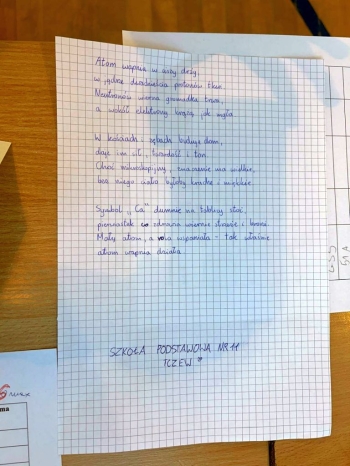 Atom wapnia w ciszy drży,
w jądrze dwadzieścia protonów tkwi.
Neutronów wierna gromadka trwa,
a wokół elektrony krążą jak mgła.
W kościach i zębach buduje dom,
daje im siłę, twardość i ton.
Choć mikroskopijny, znaczenie ma wielkie,
bez niego ciało byłoby kruche i miękkie.
Symbol „Ca" dumnie na tablicy stoi,
pierwiastek co zdrowia wiernie strzeże i broni.
Mały atom, a rola wspaniała - tak właśnie
atom wapnia działa.
SZKOŁA PODSTAWOWA NR 11
TCZEW